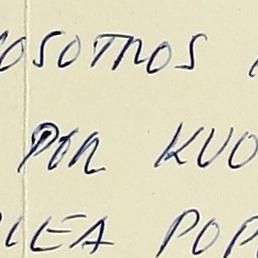 OSOTROS
POR KUO
LEA POP